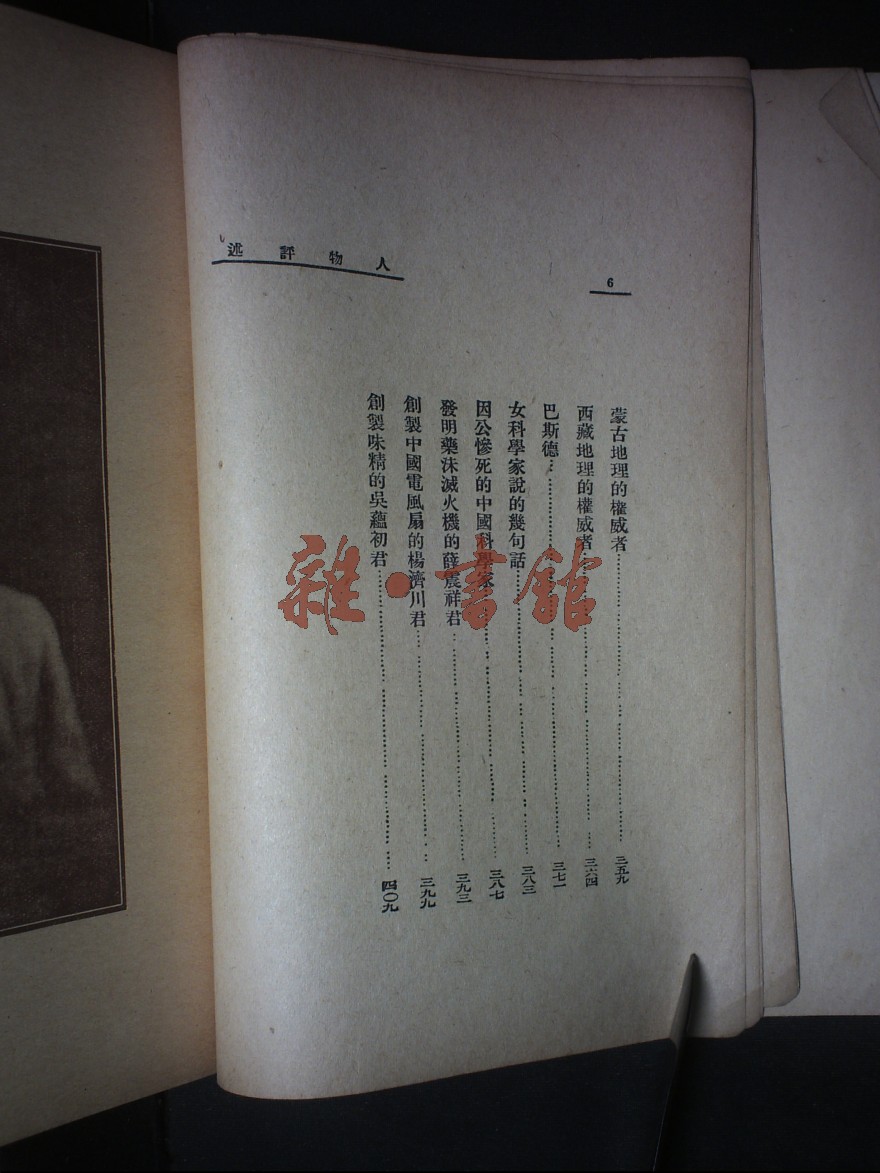 人物評述
6
蒙古地理的權威者 三五九
西藏地理的權威者 三六四
巴斯德 三七一
女科學家說的幾句話 三八三
因公慘死的中國科學家 三八七
發明藥沫滅火機的薛震祥君 三九三
創製中國電風扇的楊濟川君 三九九
創製味精的吳蘊初君 四〇九
雜·書館